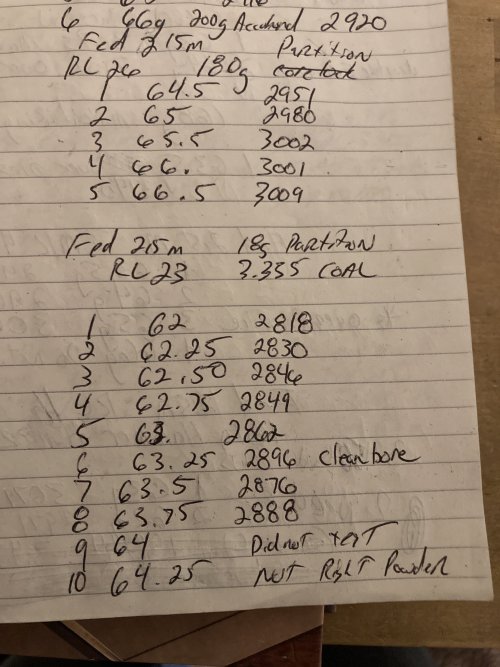 6 66g 200g Accubond 2920
Fed 215m Partition
RL 26 180g
1 64.5 2951
2 65 2980
3 65.5 3002
4 66. 3001
5 66.5 3009
Fed 215m 18g Partition
RL 23 3.335 COAL
1 62 2818
2 62.25 2830
3 62.50 2846
4 62.75 2849
5 63. 2862
6 63.25 2896 Clean bore
7 63.5 2876
8 63.75 2888
9 64 Did not test
10 64.25 Not Right Powder